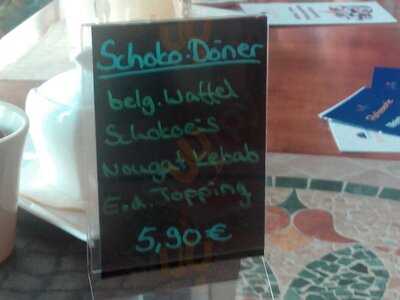 Schoko-Döner
belg. Waffel
Schokoeis
Nougat Kebab
E.d. Topping
5,90 €